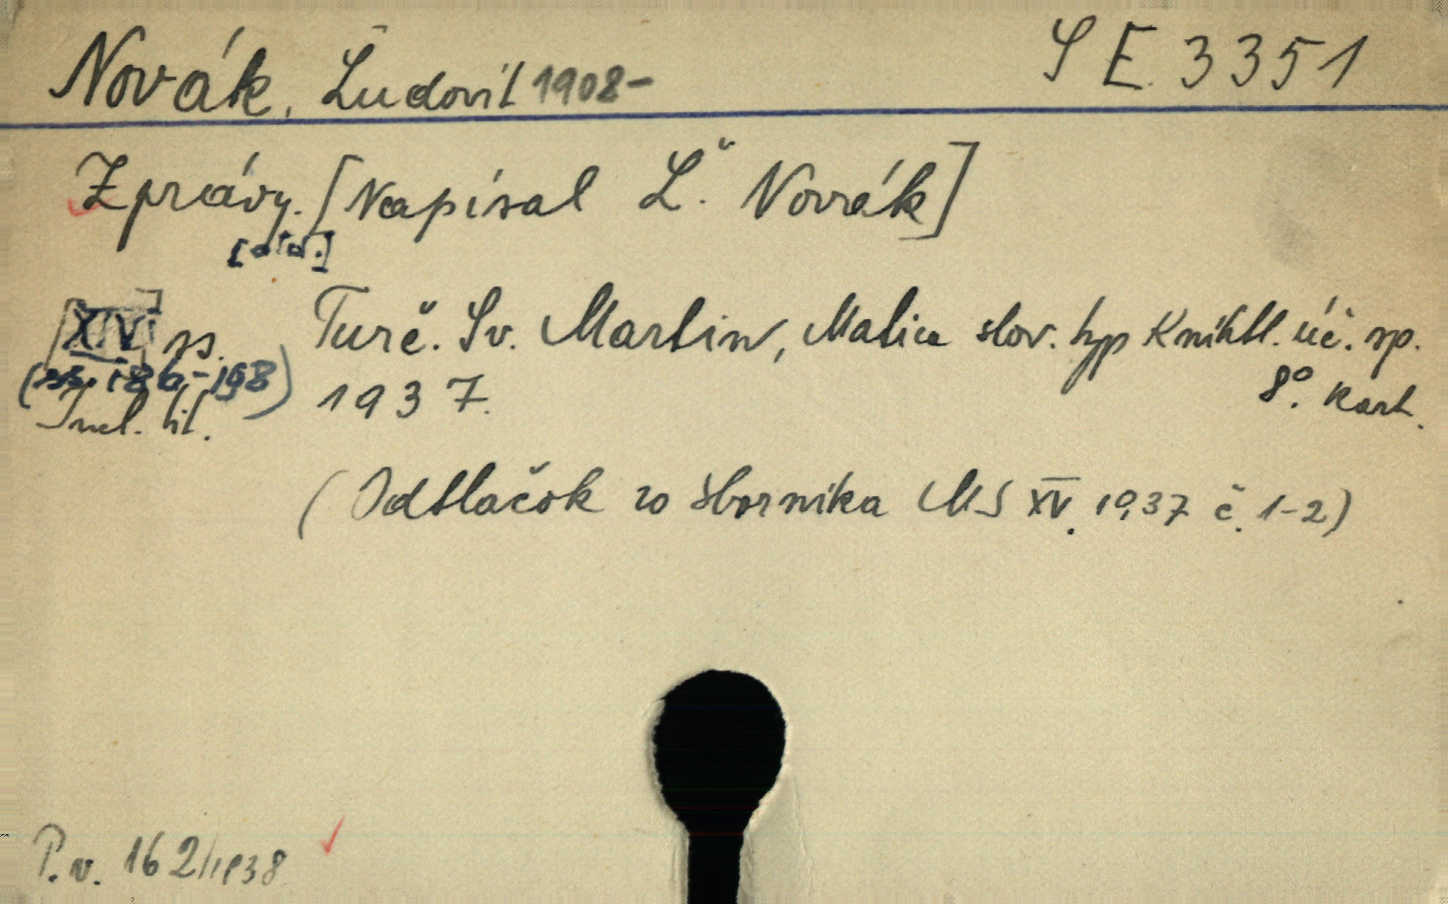 Novák, Ľudovít 1908-
S E 3351
Zprávy. [Napísal Ľ. Novák]
[XIV] ss.
Turč. Sv. Martin, Matica slov. typ Kníhtl. úč. sp.
(ss. 186-198)
1937.
8°. Kart.
Incl. tit.
(Odtlačok zo sborníka MS XV. 1937 č. 1-2)
P.v. 162/1938